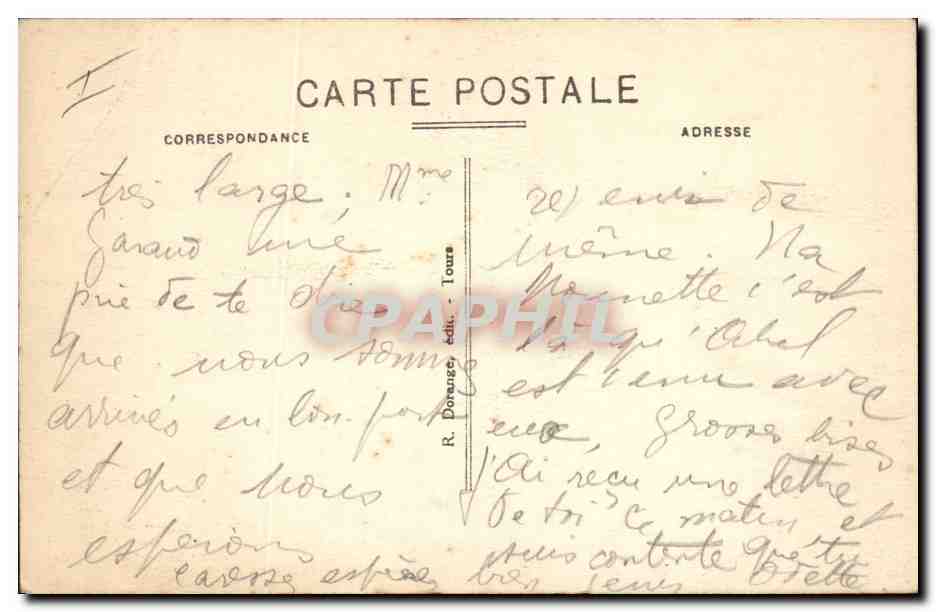 I
CARTE POSTALE
CORRESPONDANCE
ADRESSE
très large. Mme
Garand
prie de te dire
que nous sommes
arrivés en bon port
et que nous
espérons
R. Dorange, édit. - Tours
de
même. Na
Nounette c'est
là qu'Abel
est venu avec
Grosses bises
J'ai reçu une lettre
de toi ce matin et
suis contente que tu
Odette
CPAPHIL